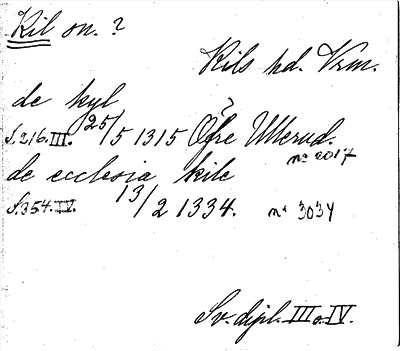 Kil sn. ?
Kils hd. Vrm.
de kyl
S. 216. III. 25/5 1315 Öfre Ullerud. ?
no 2017
de ecclesia kile
S. 354. IV. 13/2 1334. no 3034
Sv. dipl. III o. IV.